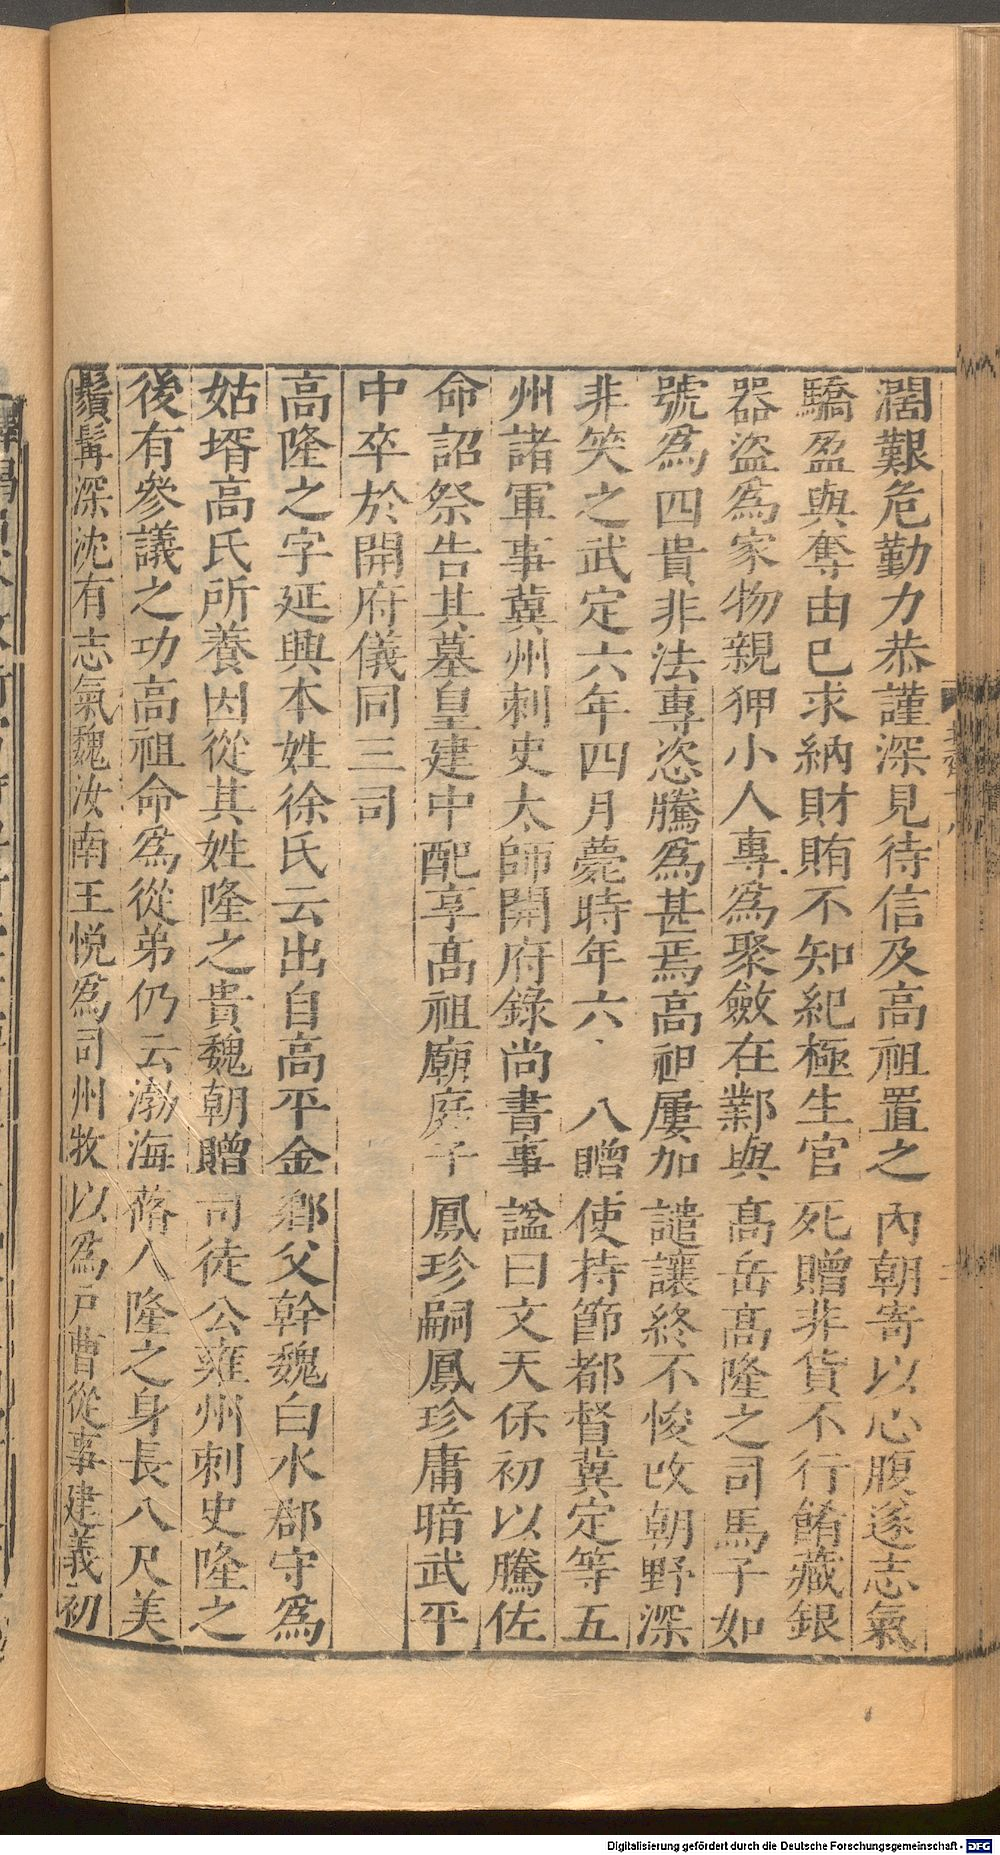 濶艱危勤力恭謹深見待信及高祖置之內朝寄以心腹遂志氣
驕盈與奪由已求納財賄不知紀極生官死贈非貨不行餚藏銀
器盜爲家物親狎小人專爲聚斂在鄴與髙岳髙隆之司馬子如
號爲四貴非法專恣騰爲甚焉高祖屢加譴讓終不悛改朝野深
非笑之武定六年四月薨時年六 八贈使持節都督冀定等五
州諸軍事冀州刺史太師開府錄尚書事謚曰文天保初以騰佐
命詔祭告其墓皇建中配享髙祖廟庭子鳳珍嗣鳳珍庸暗武平
中卒於開府儀同三司
高隆之字延興本姓徐氏云出自高平金鄉父幹魏白水郡守爲
姑壻高氏所養因從其姓隆之貴魏朝贈司徒公雍州刺史隆之
後有參議之功高祖命爲從弟仍云渤海蓨人隆之身長八尺美
鬚髯深沈有志氣魏汝南王悅爲司州牧以爲戶曹從事建義初
北齊十八
Digitalisierung gefördert durch die Deutsche Forschungsgemeinschaft - DFG